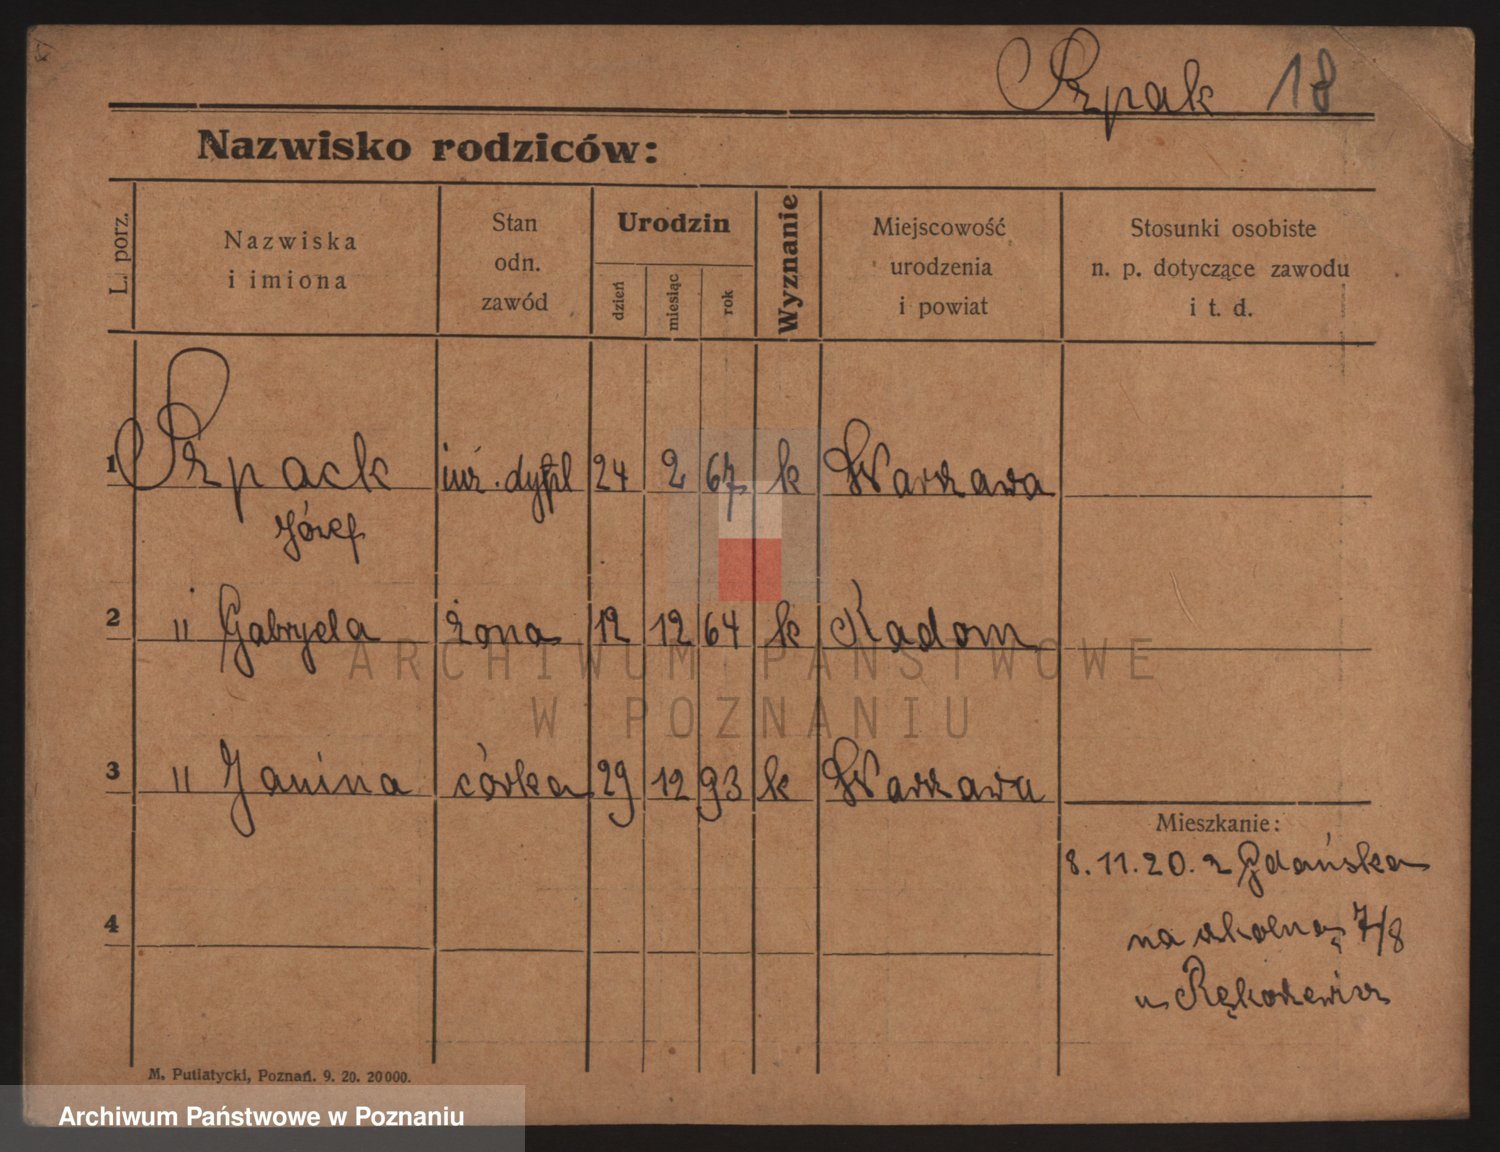 Szpak 18
Nazwisko rodziców:
L. porz.
Nazwiska
i imiona
Stan
odn.
zawód
Urodzin
dzień
miesiąc
rok
Wyznanie
Miejscowość
urodzenia
i powiat
Stosunki osobiste
n. p. dotyczące zawodu
i t. d.
1 Szpack inż. dypl 24 2 67 k Warszawa
Józef
2 " Gabryela żona 12 12 64 k Radom
3 " Janina córka 29 12 93 k Warszawa
Mieszkanie:
8.11.20. z Gdańska
na szkolną 7/8
u
4
M. Putiatycki, Poznań. 9. 20. 20000.
ARCHIWUM PAŃSTWOWE
W POZNANIU
Archiwum Państwowe w Poznaniu